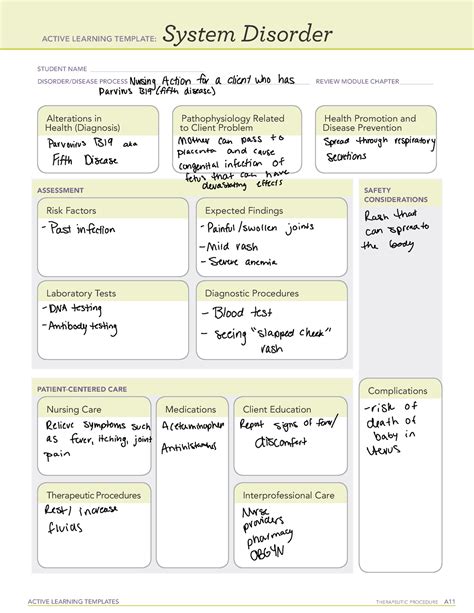 ACTIVE LEARNING TEMPLATE: System Disorder
STUDENT NAME
DISORDER/DISEASE PROCESS Nursing Action for a client who has
REVIEW MODULE CHAPTER
Parvirus B19 (fifth disease)
Alterations in
Health (Diagnosis)
Parvovirus B19 aka
Fifth Disease
Pathophysiology Related
to Client Problem
Mother can pass to
placenta and cause
congenital infection of
fetus that can have
devastating effects
Health Promotion and
Disease Prevention
Spread through respiratory
secretions
ASSESSMENT
SAFETY
CONSIDERATIONS
Risk Factors
- Past infection
Expected Findings
- Painful/swollen joints
- Mild rash
- Severe anemia
Rash that
can spread to
the body
Laboratory Tests
- DNA testing
- Antibody testing
Diagnostic Procedures
- Blood test
- Seeing "Slapped Cheek"
rash
PATIENT-CENTERED CARE
Complications
- risk of
death of
baby in
Uterus
Nursing Care
Relieve symptoms such
as fever, itching, joint
pain
Medications
Acetaminophen
Antihistamines
Client Education
Repot signs of fever/
discomfort
Therapeutic Procedures
Rest/ increase
fluids
Interprofessional Care
Nurse
providers
pharmacy
OBGYN
ACTIVE LEARNING TEMPLATES
THERAPEUTIC PROCEDURE A11